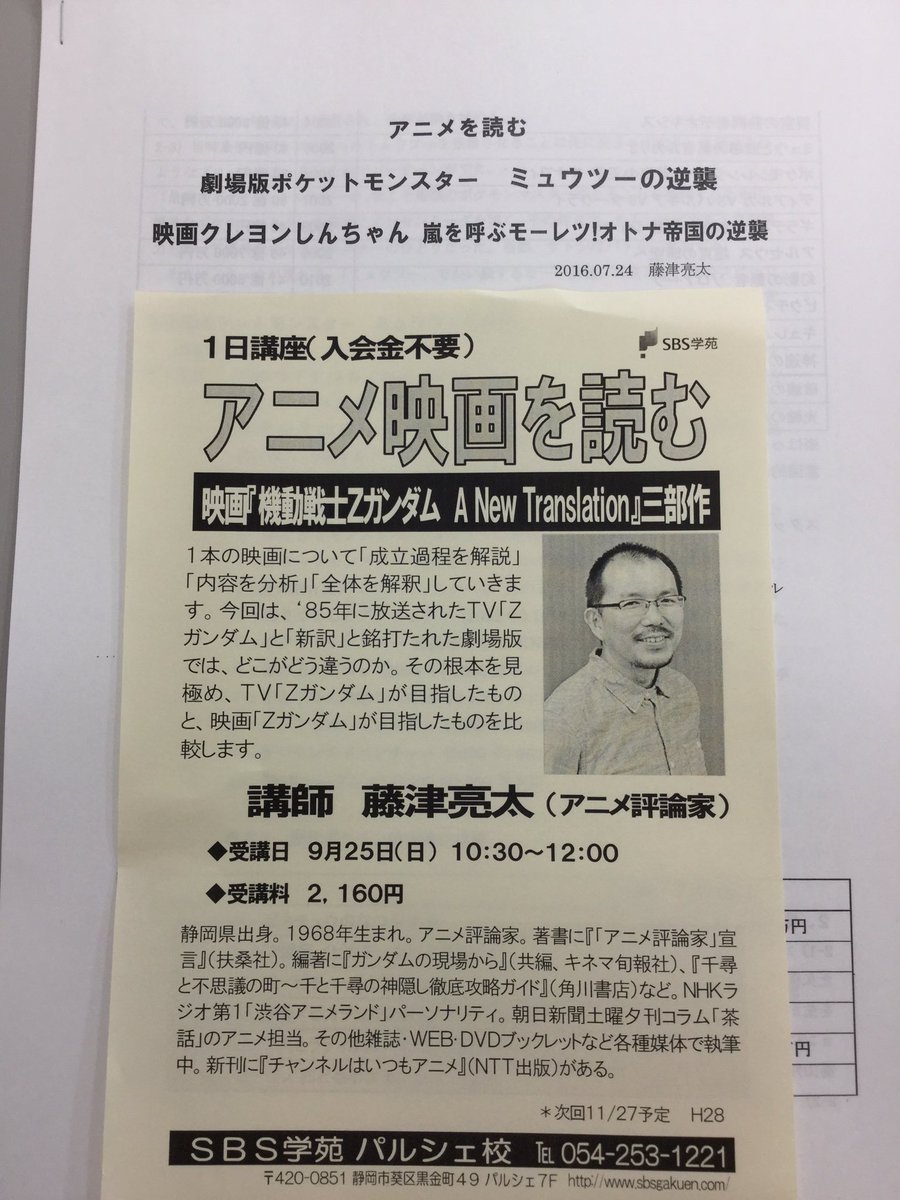 アニメを読む
劇場版ポケットモンスター　ミュウツーの逆襲
映画クレヨンしんちゃん 嵐を呼ぶモーレツ!オトナ帝国の逆襲
2016.07.24　藤津亮太
1日講座(入会金不要)
SBS学苑
アニメ映画を読む
映画『機動戦士Zガンダム A New Translation』三部作
1本の映画について「成立過程を解説」
「内容を分析」「全体を解釈」していきま
す。今回は、‘85年に放送されたTV「Z
ガンダム」と「新訳」と銘打たれた劇場版
では、どこがどう違うのか。その根本を見
極め、TV「Zガンダム」が目指したもの
と、映画「Zガンダム」が目指したものを比
較します。
講師　藤津亮太(アニメ評論家)
◆受講日　9月25日(日) 10:30～12:00
◆受講料　2,160円
静岡県出身。1968年生まれ。アニメ評論家。著書に『「アニメ評論家」宣
言』(扶桑社)。編著に『ガンダムの現場から』(共編、キネマ旬報社)、『千尋
と不思議の町～千と千尋の神隠し徹底攻略ガイド』(角川書店)など。NHKラ
ジオ第1「渋谷アニメランド」パーソナリティ。朝日新聞土曜夕刊コラム「茶
話」のアニメ担当。その他雑誌・WEB・DVDブックレットなど各種媒体で執筆
中。新刊に『チャンネルはいつもアニメ』(NTT出版)がある。
＊次回11/27予定　H28
SBS学苑 パルシェ校 TEL 054-253-1221
〒420-0851 静岡市葵区黒金町49 パルシェ7F http://www.sbsgakuen.com/
万円
円